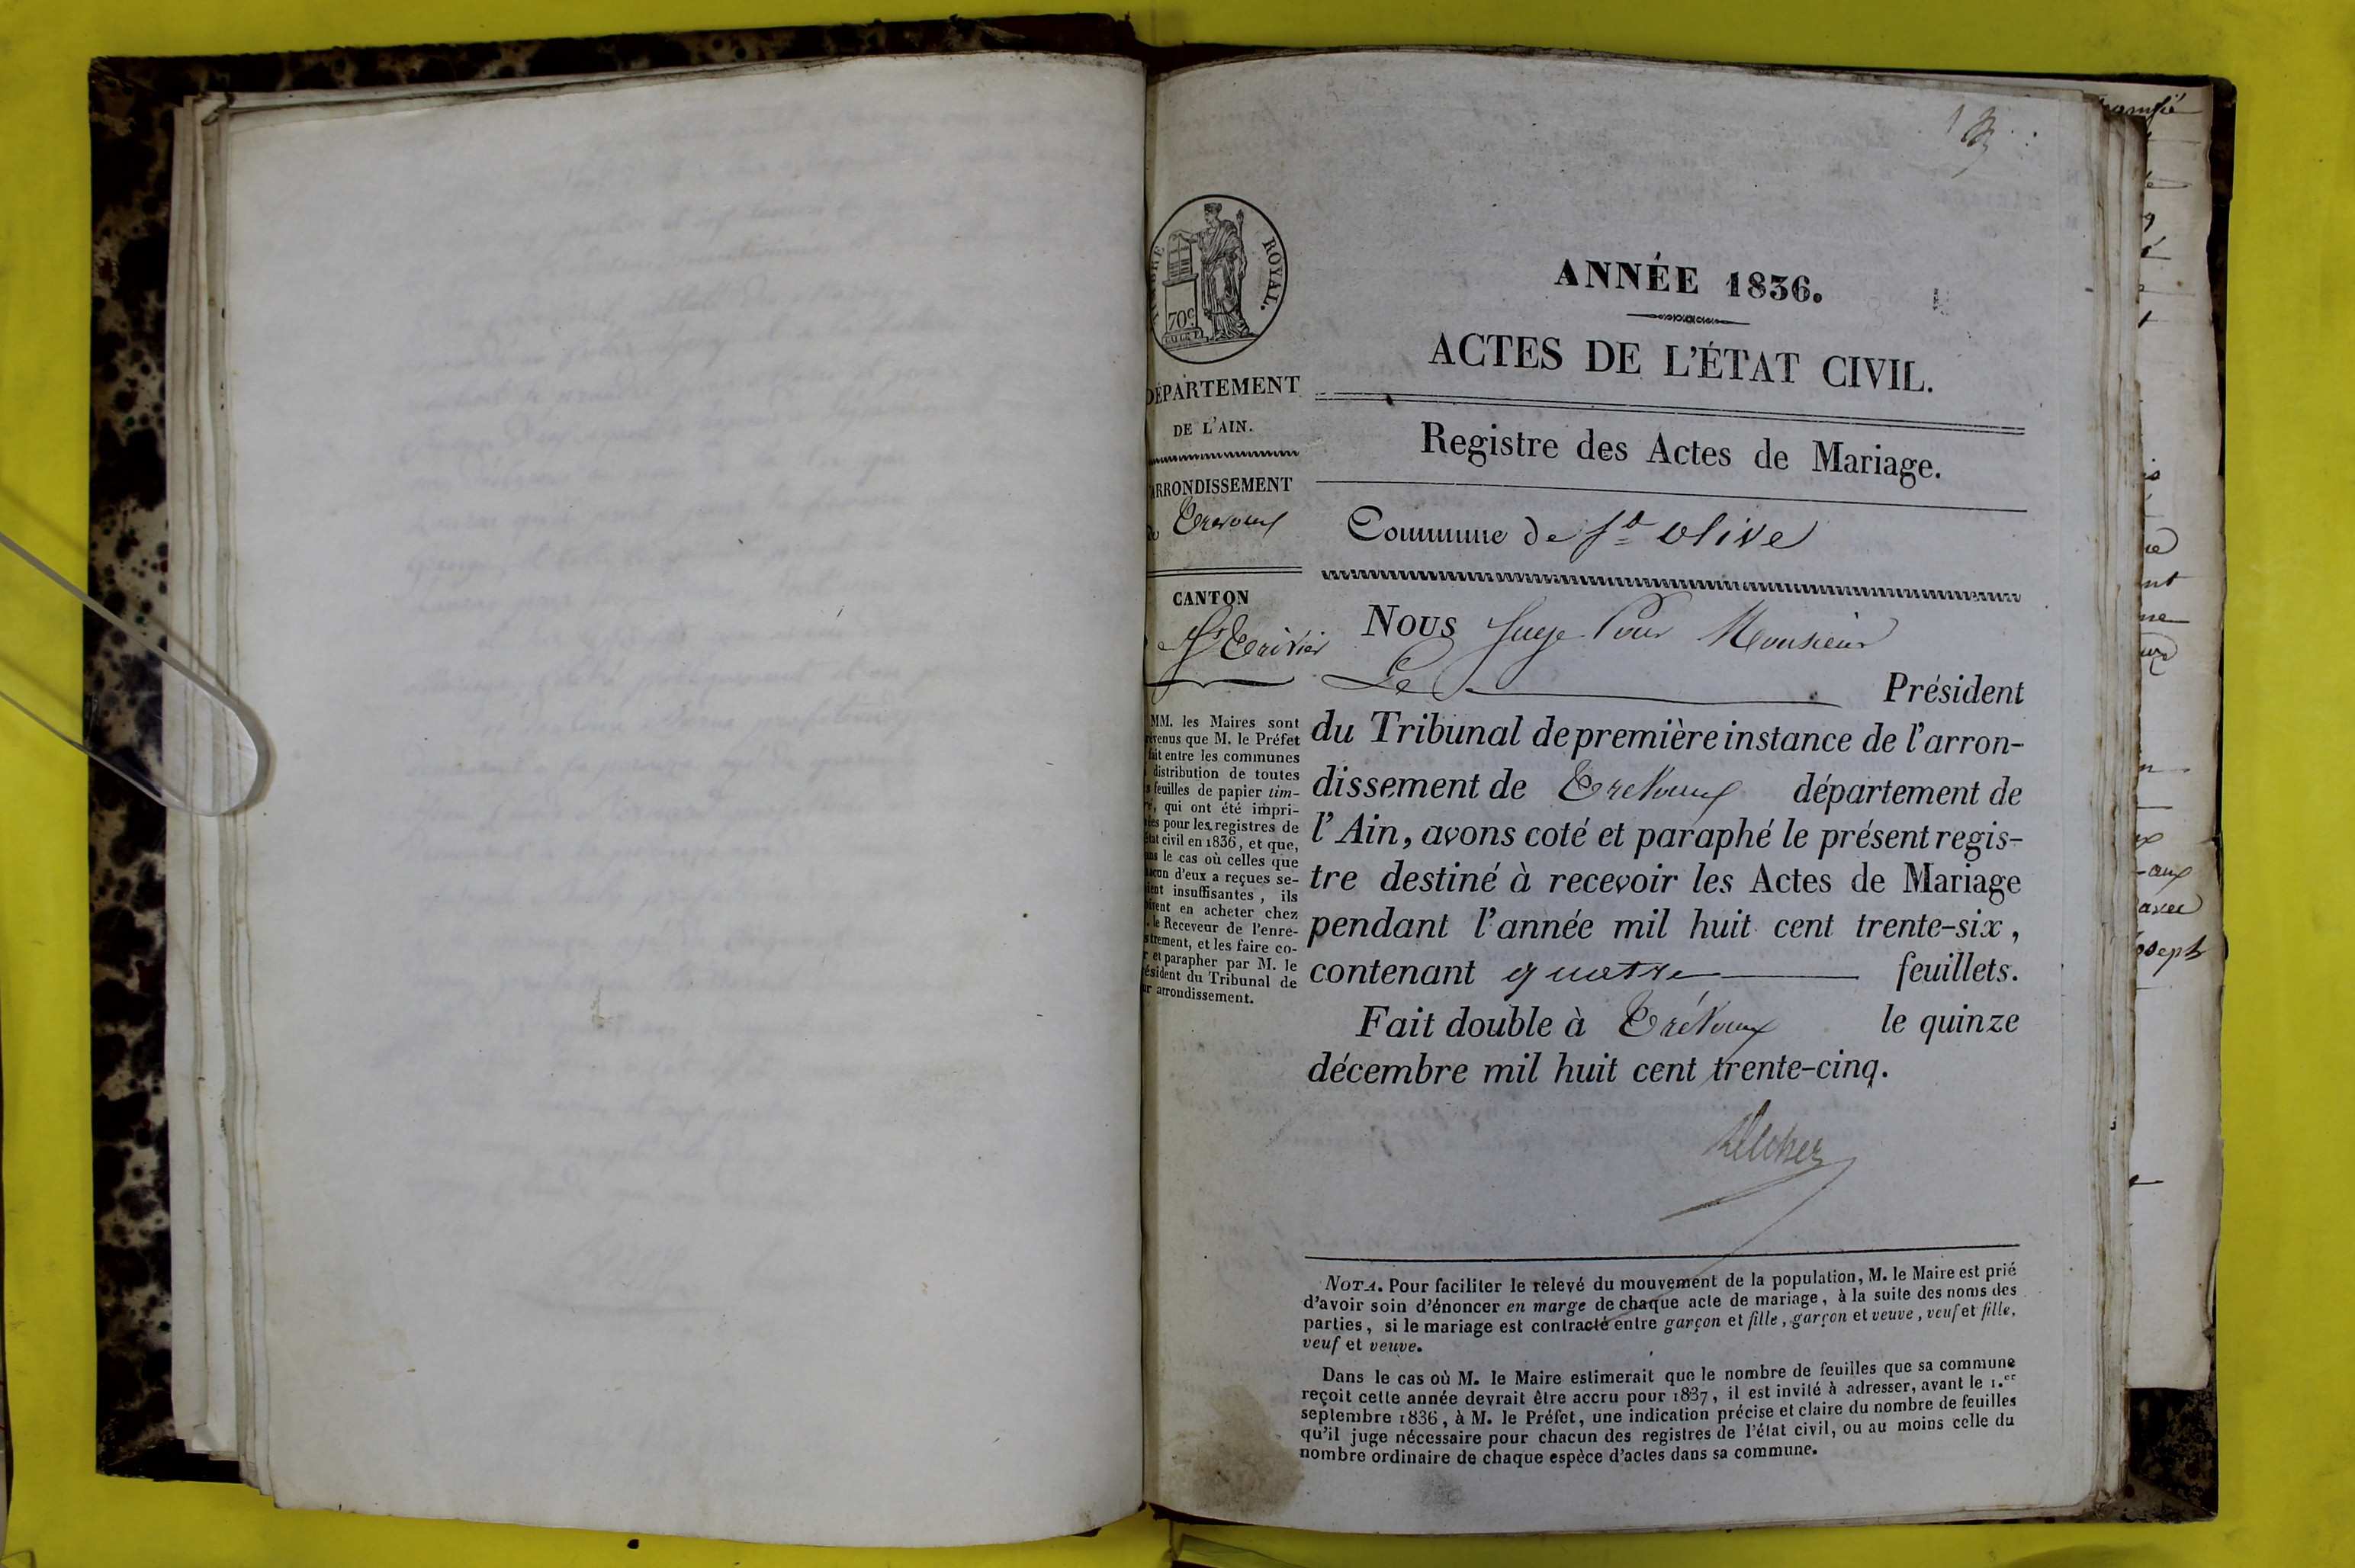 TIMBRE ROYAL.
70c
ANNÉE 1836.
ACTES DE L'ÉTAT CIVIL.
Registre des Actes de Mariage.
Commune de Ste Olive
DÉPARTEMENT
DE L'AIN.
ARRONDISSEMENT
de Trevoux
CANTON
St Trivier
MM. les Maires sont
venus que M. le Préfet
fait entre les communes
distribution de toutes
feuilles de papier tim-
ré, qui ont été impri-
ées pour les registres de
état civil en 1836, et que,
ns le cas où celles que
acun d'eux a reçues se-
ient insuffisantes, ils
ivent en acheter chez
. le Receveur de l'enre-
strement, et les faire co-
r et parapher par M. le
ésident du Tribunal de
ur arrondissement.
Nous Juge Pour Monsieur
Le Président
du Tribunal de première instance de l'arron-
dissement de Trevoux département de
l'Ain, avons coté et paraphé le présent regis-
tre destiné à recevoir les Actes de Mariage
pendant l'année mil huit cent trente-six,
contenant quatre feuillets.
Fait double à Trévoux le quinze
décembre mil huit cent trente-cinq.
NOTA. Pour faciliter le relevé du mouvement de la population, M. le Maire est prié
d'avoir soin d'énoncer en marge de chaque acte de mariage, à la suite des noms des
parties, si le mariage est contracté entre garçon et fille, garçon et veuve, veuf et fille,
veuf et veuve.
Dans le cas où M. le Maire estimerait que le nombre de feuilles que sa commune
reçoit cette année devrait être accru pour 1837, il est invité à adresser, avant le 1.er
septembre 1836, à M. le Préfet, une indication précise et claire du nombre de feuilles
qu'il juge nécessaire pour chacun des registres de l'état civil, ou au moins celle du
nombre ordinaire de chaque espèce d'actes dans sa commune.